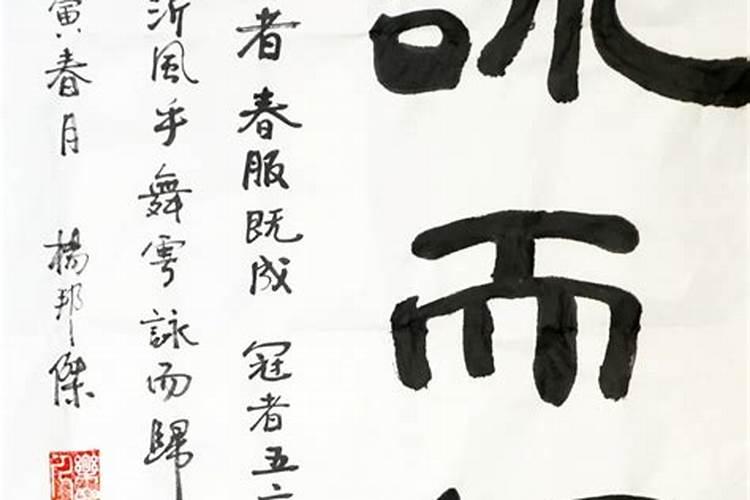 詠而
者春服既成冠者五六
沂風乎舞雩詠而歸
寅春月楊邦傑